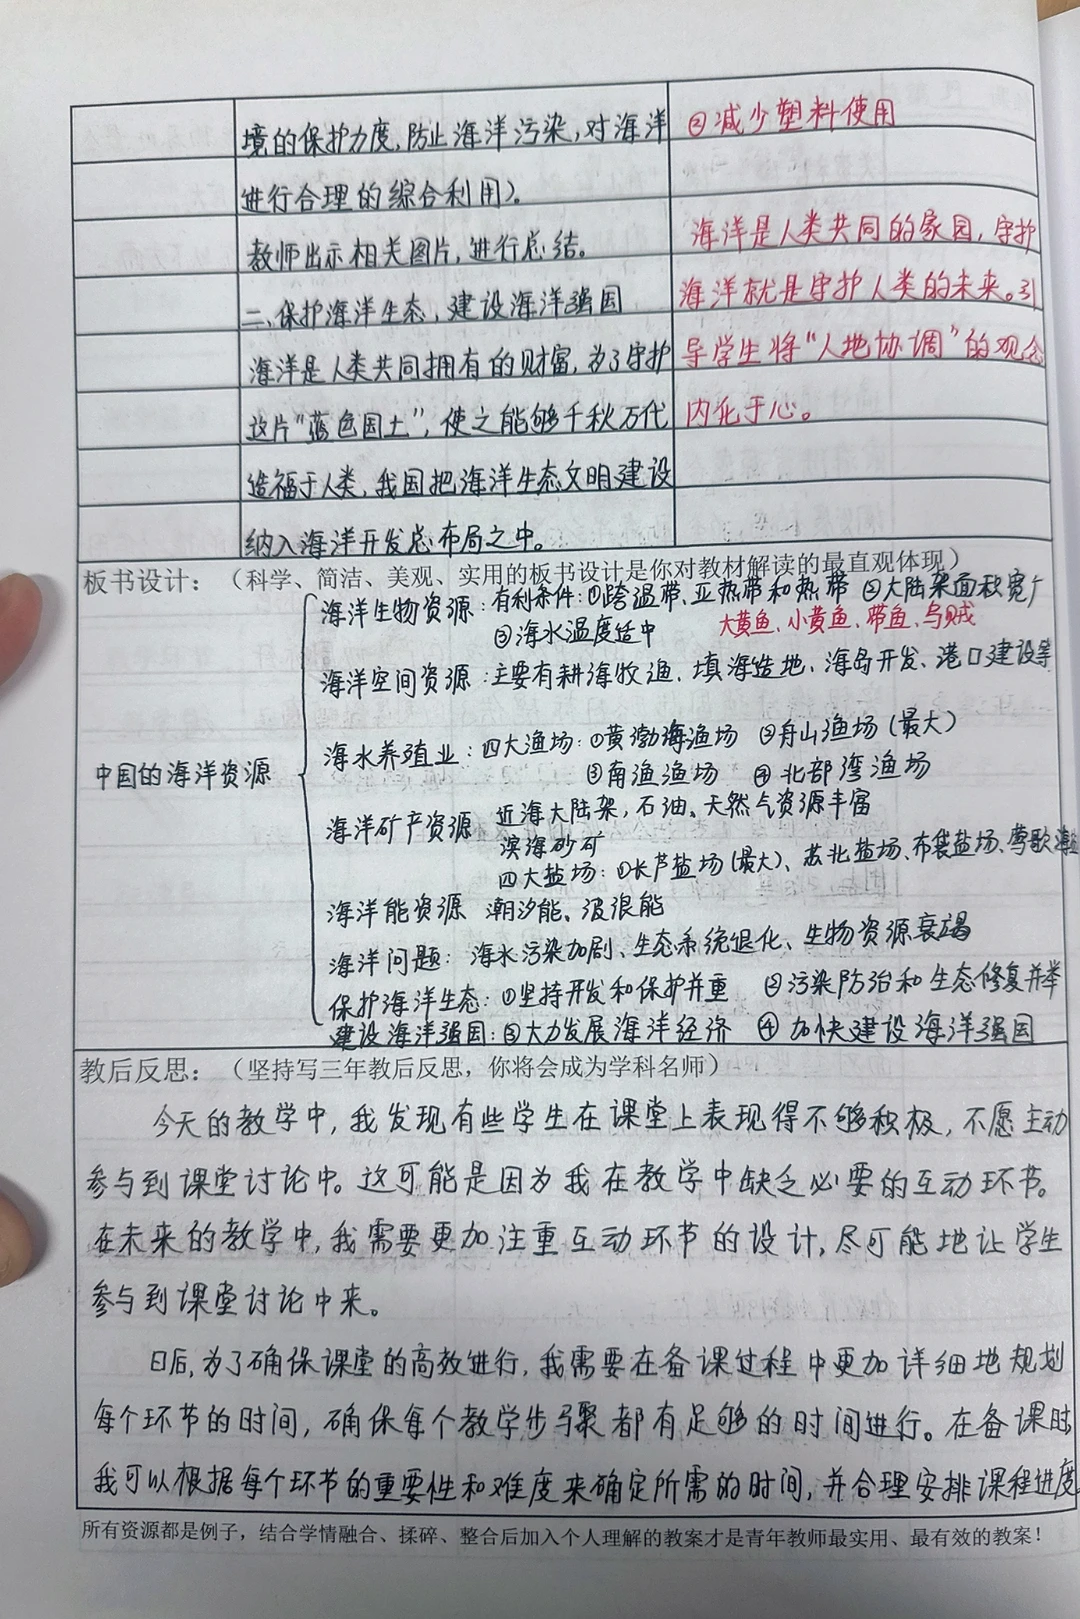 境的保护力度,防止海洋污染,对海洋
进行合理的综合利用)。
教师出示相关图片,进行总结。
二、保护海洋生态,建设海洋强国
海洋是人类共同拥有的财富,为了守护
这片“蓝色国土”,使之能够千秋万代
造福于人类,我国把海洋生态文明建设
纳入海洋开发总布局之中。
②减少塑料使用
海洋是人类共同的家园,守护
海洋就是守护人类的未来。引
导学生将“人地协调”的观念
内化于心。
板书设计:(科学、简洁、美观、实用的板书设计是你对教材解读的最直观体现)
中国的海洋资源
海洋生物资源:有利条件:①跨温带、亚热带和热带 ②大陆架面积宽广
③海水温度适中 大黄鱼、小黄鱼、带鱼、乌贼
海洋空间资源:主要有耕海牧渔、填海造地、海岛开发、港口建设等
海水养殖业:四大渔场:①黄渤海渔场 ②舟山渔场(最大)
③南渔渔场 ④北部湾渔场
海洋矿产资源 近海大陆架,石油、天然气资源丰富
滨海砂矿
四大盐场:①长芦盐场(最大)、苏北盐场、布袋盐场、莺歌海
海洋能资源 潮汐能、波浪能
海洋问题:海水污染加剧、生态系统退化、生物资源衰竭
保护海洋生态:①坚持开发和保护并重 ②污染防治和生态修复并举
建设海洋强国:③大力发展海洋经济 ④加快建设海洋强国
教后反思:(坚持写三年教后反思,你将会成为学科名师)
今天的教学中,我发现有些学生在课堂上表现得不够积极,不愿主动
参与到课堂讨论中。这可能是因为我在教学中缺乏必要的互动环节。
在未来的教学中,我需要更加注重互动环节的设计,尽可能地让学生
参与到课堂讨论中来。
日后,为了确保课堂的高效进行,我需要在备课过程中更加详细地规划
每个环节的时间,确保每个教学步骤都有足够的时间进行。在备课时,
我可以根据每个环节的重要性和难度来确定所需的时间,并合理安排课程进度。
所有资源都是例子,结合学情融合、揉碎、整合后加入个人理解的教案才是青年教师最实用、最有效的教案!